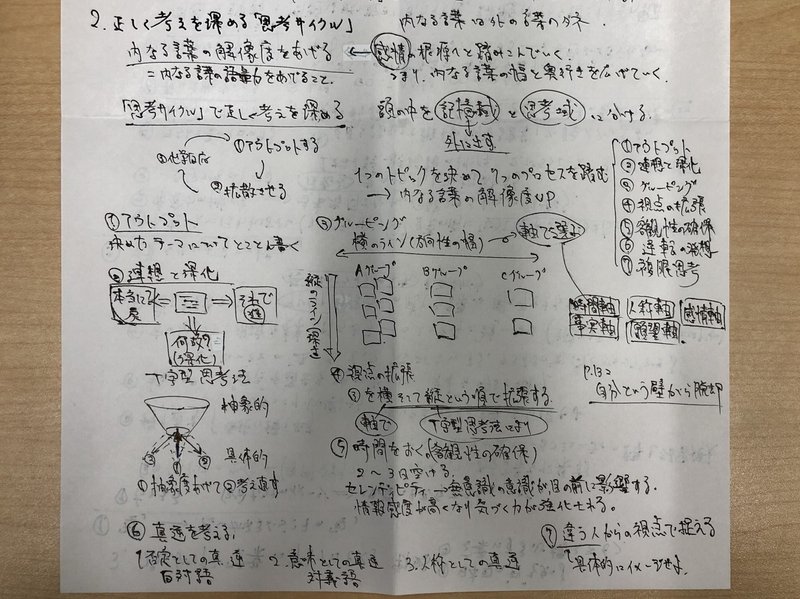 2. 正しく考えを深める「思考サイクル」
内なる言葉は外の言葉のタネ
内なる言葉の解像度をあげる ← 感情の根源へと踏みこんでいく
= 内なる言葉の語彙力をあげること。
つまり、内なる言葉の幅と奥行きを広げていく。
「思考サイクル」で正しく考えを深める
頭の中を 記憶域 と 思考域 に分ける。
外に出す
①アウトプットする
②拡散させる
③化学反応
1つのトピックを決めて 7つのプロセスを踏む
→ 内なる言葉の解像度UP
①アウトプット
②連想と深化
③グルーピング
④視点の拡張
⑤客観性の確保
⑥逆転の発想
⑦複眼思考
①アウトプット
決めたテーマについてとことん書く
②連想と深化
本当に?
それで
何故?
(深化)
T字型思考法
抽象的
具体的
③ ① ②
③グルーピング
横のライン(方向性の幅)
軸で選ぶ
縦のライン(深さ)
Aグループ Bグループ Cグループ
時間軸 人称軸 感情軸
事実軸 願望軸
④視点の拡張
③を横そして縦という順で拡張する
軸で
T字型思考法により
P.132
自分という壁から脱却
⑤時間をおく(客観性の確保)
2〜3日空ける。
セレンディピティ → 無意識の意識が目の前に影響する。
情報感度が高くなり気づく力が強化される。
⑥真逆を考える。
1. 否定としての真逆
反対語
2. 意味としての真逆
対義語
3. 人称としての真逆
⑦違う人からの視点で捉える
具体的にイメージせよ